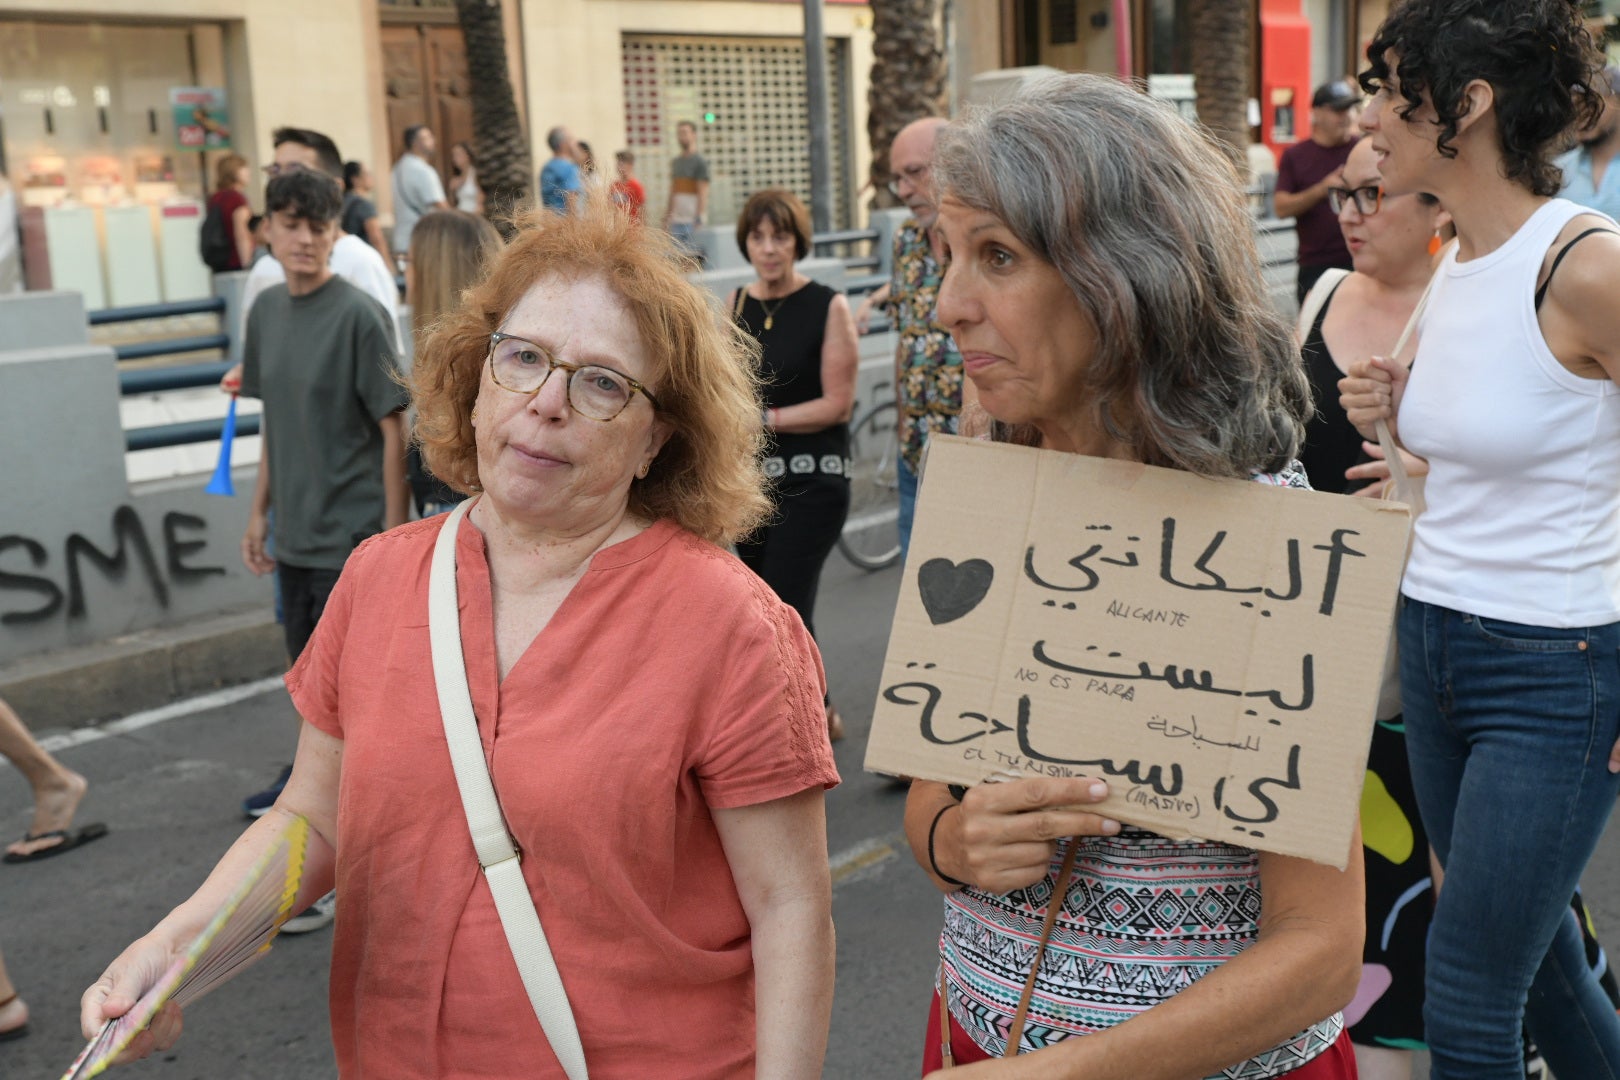 SME
أليكانتي
ALICANTE
ليست
NO ES PARA
للسياحة
لي ساحة
EL TURISMO
(MASIVO)